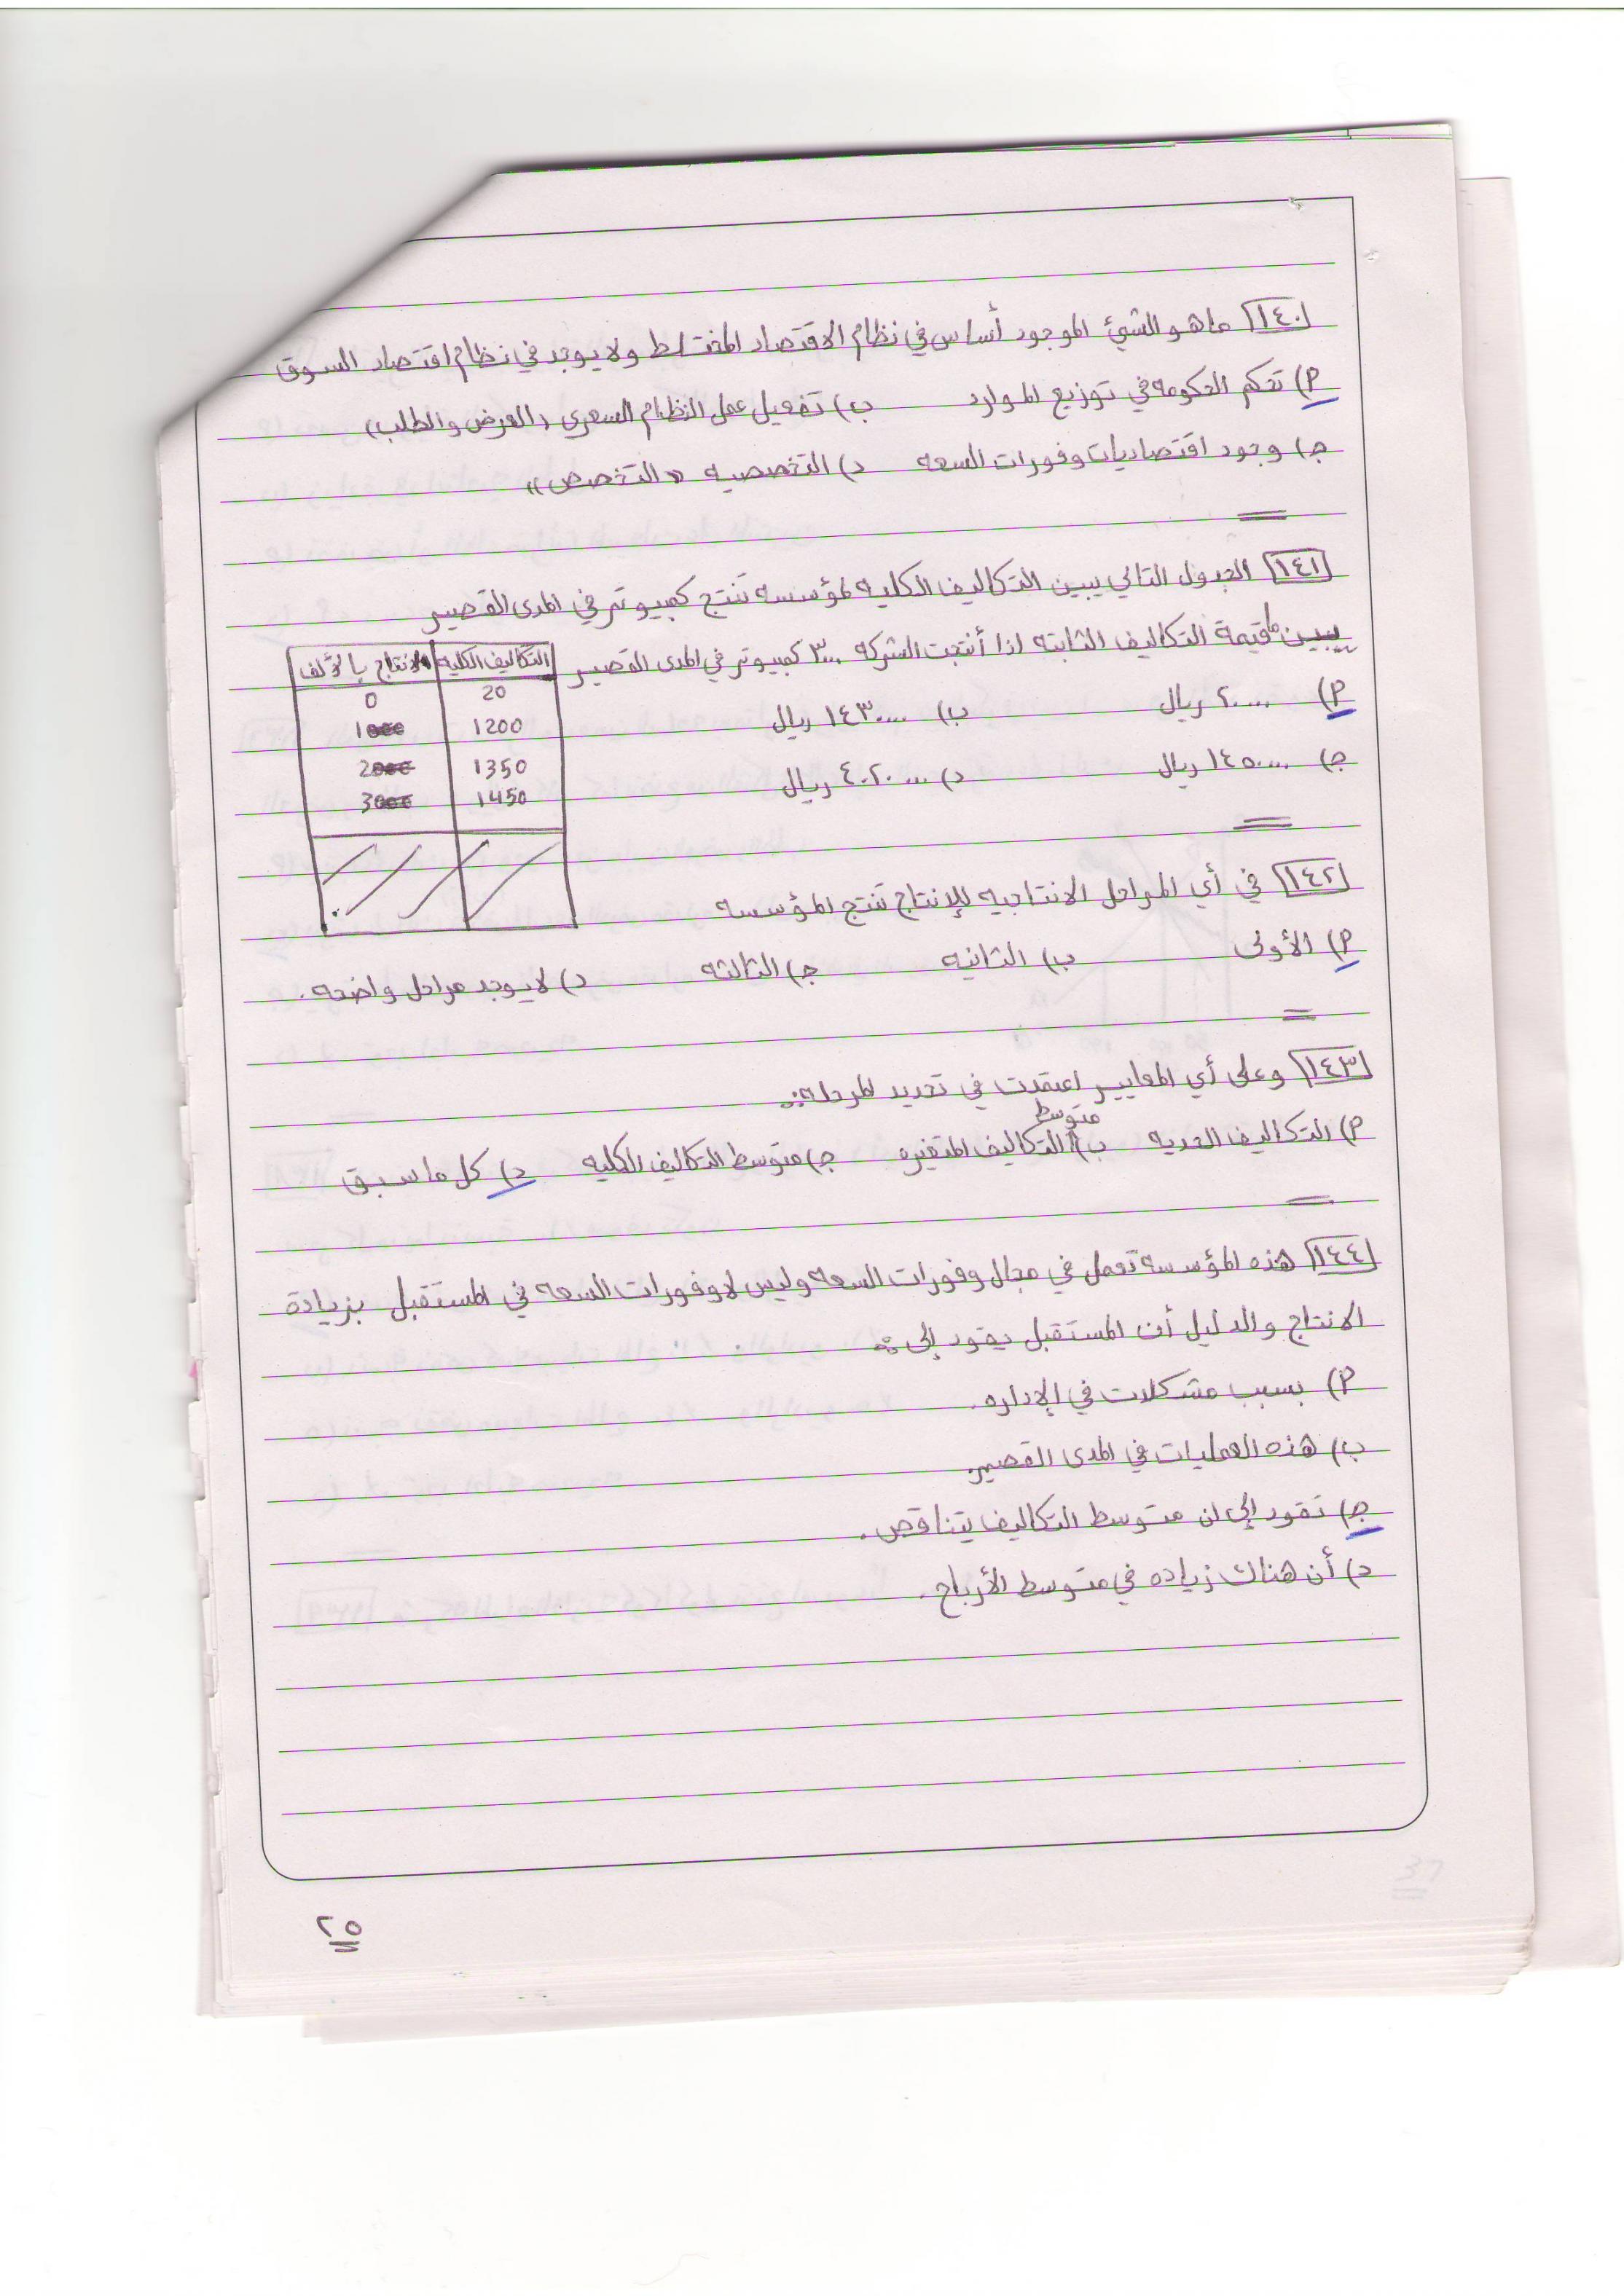 ١٤٠ ماهو الشيئ الموجود أساس في نظام الاقتصاد المختلط ولا يوجد في نظام اقتصاد السوق
أ) تحكم الحكومه في توزيع الموارد ب) تفعيل عمل النظام السعري (العرض والطلب)
ج) وجود اقتصاديات وفورات السعه د) التخصصيه "التخصص"
١٤١ الجدول التالي يبين التكاليف الكليه لمؤسسه تنتج كمبيوتر في المدى القصير
ما قيمة التكاليف الثابته اذا أنتجت الشركه ٣٠٠٠ كمبيوتر في المدى القصير
التكاليف الكليه الانتاج بالألف
20 0
1200 1
1350 2
1450 3
أ) ٢٠٠٠٠ ريال ب) ١٤٣٠٠٠٠ ريال
ج) ١٤٥٠٠٠٠ ريال د) ٤٠٢٠٠٠٠ ريال
١٤٢ في أي المراحل الانتاجيه للإنتاج تنتج المؤسسه
أ) الأولى ب) الثانيه ج) الثالثه د) لا يوجد مراحل واضحه.
١٤٣ وعلى أي المعايير اعتمدت في تحديد المرحله:
أ) التكاليف الحديه ب) متوسط التكاليف المتغيره ج) متوسط التكاليف الكليه د) كل ما سبق
١٤٤ هذه المؤسسه تعمل في مجال وفورات السعه وليس لاوفورات السعه في المستقبل بزيادة
الانتاج والدليل أن المستقبل يقود إلى:
أ) بسبب مشكلات في الإداره.
ب) هذه العمليات في المدى القصير.
ج) تقود إلى ان متوسط التكاليف يتناقص.
د) أن هناك زياده في متوسط الأرباح.
٢٥